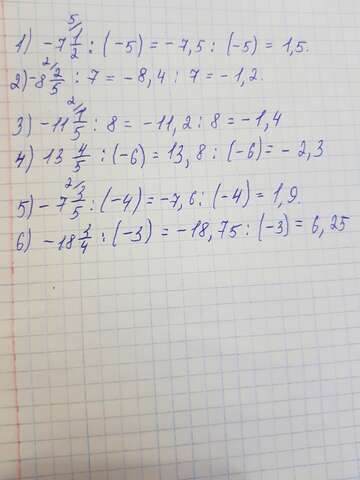 1) -7 1/2 : (-5) = -7,5 : (-5) = 1,5.
2) -8 2/5 : 7 = -8,4 : 7 = -1,2.
3) -11 1/5 : 8 = -11,2 : 8 = -1,4
4) 13 4/5 : (-6) = 13,8 : (-6) = -2,3
5) -7 3/5 : (-4) = -7,6 : (-4) = 1,9.
6) -18 3/4 : (-3) = -18,75 : (-3) = 6,25